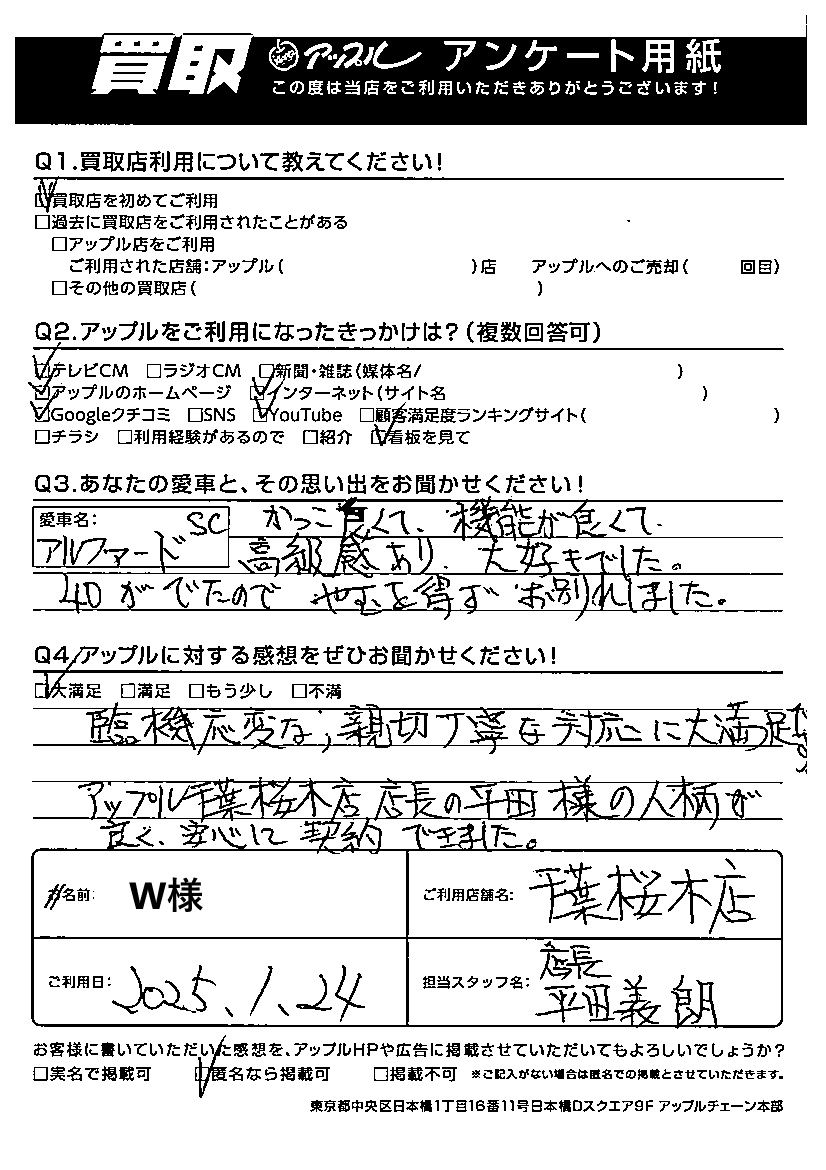 買取 アップル アンケート用紙
この度は当店をご利用いただきありがとうございます!
Q1.買取店利用について教えてください!
☑買取店を初めてご利用
□過去に買取店をご利用されたことがある
□アップル店をご利用
ご利用された店舗:アップル( )店 アップルへのご売却( 回目)
□その他の買取店( )
Q2.アップルをご利用になったきっかけは?(複数回答可)
☑テレビCM □ラジオCM □新聞・雑誌(媒体名/ )
☑アップルのホームページ ☑インターネット(サイト名 )
☑Googleクチコミ □SNS ☑YouTube □顧客満足度ランキングサイト( )
□チラシ □利用経験があるので □紹介 ☑看板を見て
Q3.あなたの愛車と、その思い出をお聞かせください!
愛車名: SC かっこ良くて、機能が良くて、
アルファード 高級感あり、大好きでした。
40がでたので やむを得ず お別れしました。
Q4.アップルに対する感想をぜひお聞かせください!
☑大満足 □満足 □もう少し □不満
臨機応変な、親切丁寧な対応に大満足です。
アップル千葉桜木店 店長の平田様の人柄が
良く、安心して契約できました。
お名前: W様 ご利用店舗名: 千葉桜木店
ご利用日: 2025、1、24 担当スタッフ名: 店長
平田義朗
お客様に書いていただいた感想を、アップルHPや広告に掲載させていただいてもよろしいでしょうか?
□実名で掲載可 ☑匿名なら掲載可 □掲載不可 ※ご記入がない場合は匿名での掲載とさせていただきます。
東京都中央区日本橋1丁目16番11号日本橋Dスクエア9F アップルチェーン本部